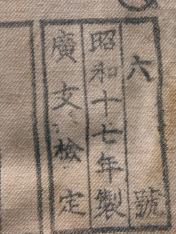 六號
昭和十七年製
廣支檢定